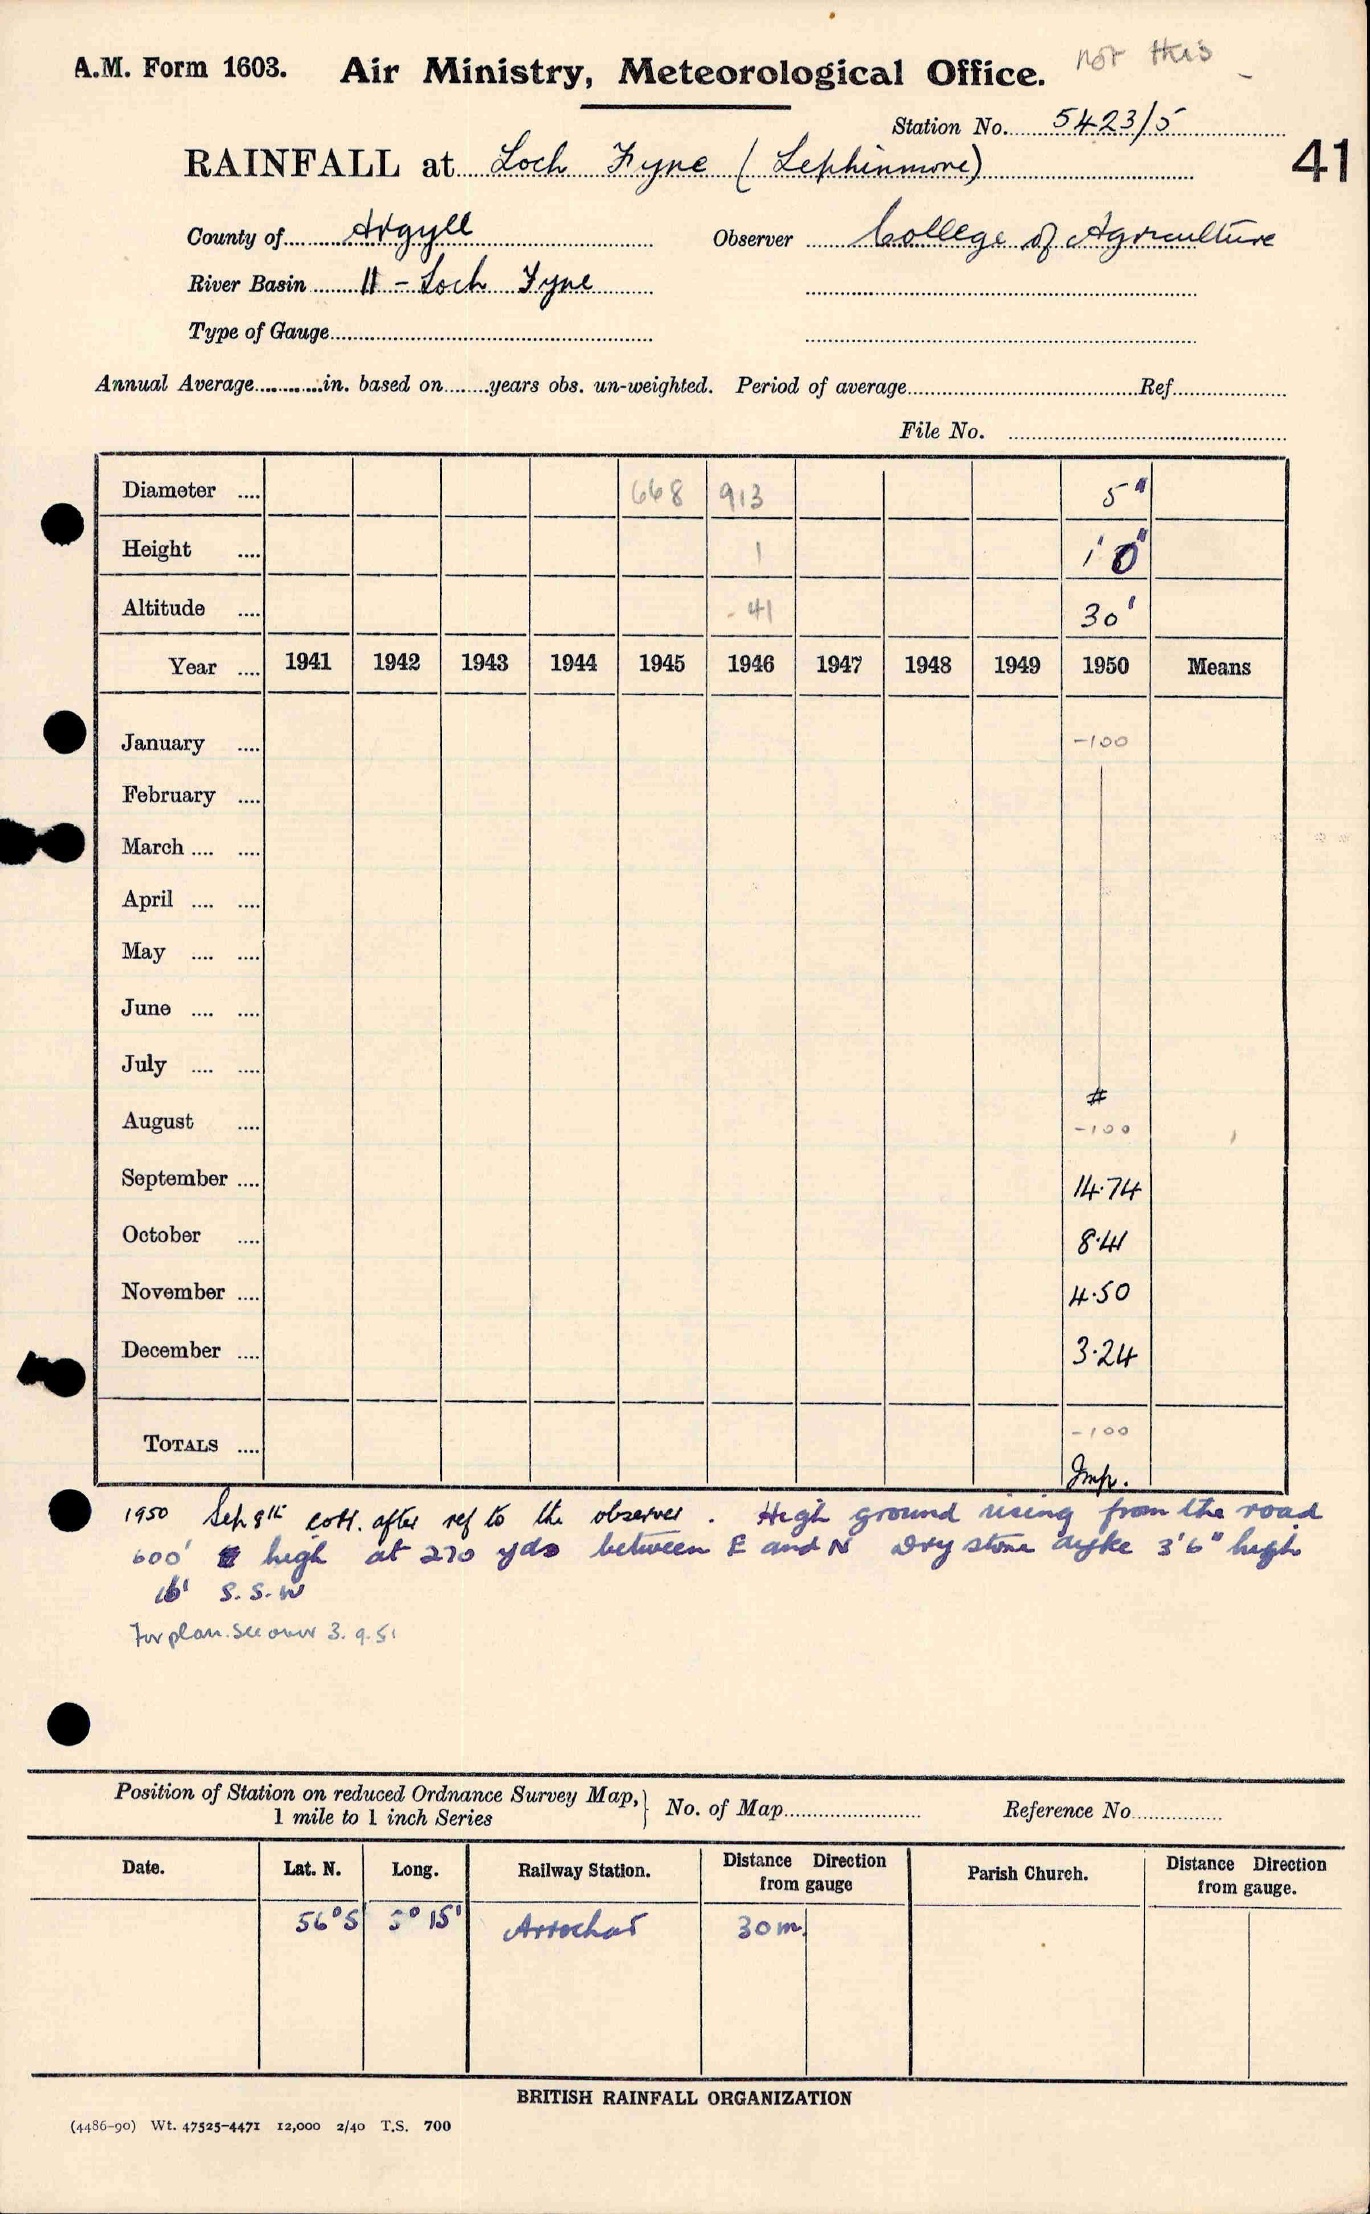 not this
A.M. Form 1603. Air Ministry, Meteorological Office.
Station No. 5423/5
RAINFALL at Loch Fyne (Lephinmore)
41
County of Argyll Observer College of Agriculture
River Basin 11 - Loch Fyne
Type of Gauge
Annual Average in. based on years obs. un-weighted. Period of average Ref
File No.
Diameter 668 913 5"
Height 1 1' 0"
Altitude 41 30'
Year 1941 1942 1943 1944 1945 1946 1947 1948 1949 1950 Means
January -100
February
March
April
May
June
July
#
August -100
September 14.74
October 8.41
November 4.50
December 3.24
TOTALS -100
Imp.
1950 Sep 8th after ref to the observer. High ground rising from the road
600' high at 270 yds between E and N Dry stone dyke 3'6" high
16' S.S.W
For plan see over 3.9.51
Position of Station on reduced Ordnance Survey Map, 1 mile to 1 inch Series } No. of Map Reference No
Date. Lat. N. Long. Railway Station. Distance Direction from gauge Parish Church. Distance Direction from gauge.
56°5 5° 15' Arrochar 30m.
BRITISH RAINFALL ORGANIZATION
(4486-90) Wt. 47525-4471 12,000 2/40 T.S. 700